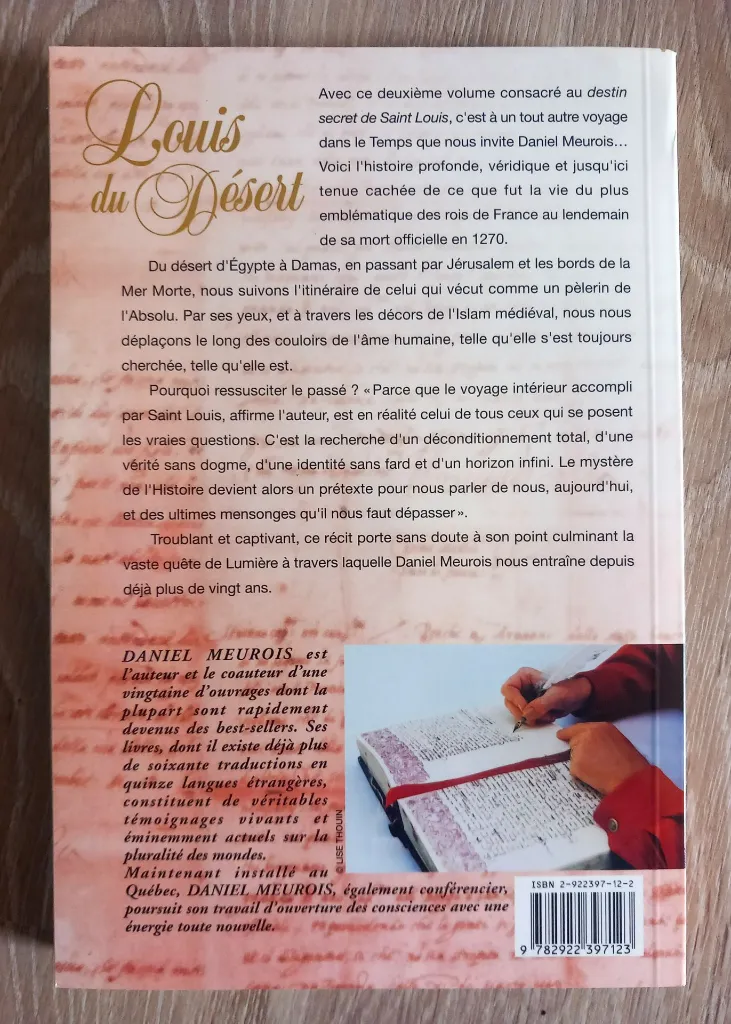 Louis
du Désert
Avec ce deuxième volume consacré au destin
secret de Saint Louis, c'est à un tout autre voyage
dans le Temps que nous invite Daniel Meurois...
Voici l'histoire profonde, véridique et jusqu'ici
tenue cachée de ce que fut la vie du plus
emblématique des rois de France au lendemain
de sa mort officielle en 1270.
Du désert d'Égypte à Damas, en passant par Jérusalem et les bords de la
Mer Morte, nous suivons l'itinéraire de celui qui vécut comme un pèlerin de
l'Absolu. Par ses yeux, et à travers les décors de l'Islam médiéval, nous nous
déplaçons le long des couloirs de l'âme humaine, telle qu'elle s'est toujours
cherchée, telle qu'elle est.
Pourquoi ressusciter le passé ? «Parce que le voyage intérieur accompli
par Saint Louis, affirme l'auteur, est en réalité celui de tous ceux qui se posent
les vraies questions. C'est la recherche d'un déconditionnement total, d'une
vérité sans dogme, d'une identité sans fard et d'un horizon infini. Le mystère
de l'Histoire devient alors un prétexte pour nous parler de nous, aujourd'hui,
et des ultimes mensonges qu'il nous faut dépasser».
Troublant et captivant, ce récit porte sans doute à son point culminant la
vaste quête de Lumière à travers laquelle Daniel Meurois nous entraîne depuis
déjà plus de vingt ans.
DANIEL MEUROIS est
l'auteur et le coauteur d'une
vingtaine d'ouvrages dont la
plupart sont rapidement
devenus des best-sellers. Ses
livres, dont il existe déjà plus
de soixante traductions en
quinze langues étrangères,
constituent de véritables
témoignages vivants et
éminemment actuels sur la
pluralité des mondes.
Maintenant installé au
Québec, DANIEL MEUROIS, également conférencier,
poursuit son travail d'ouverture des consciences avec une
énergie toute nouvelle.
© LISE THOUIN
ISBN 2-922397-12-2
9 782922 397123